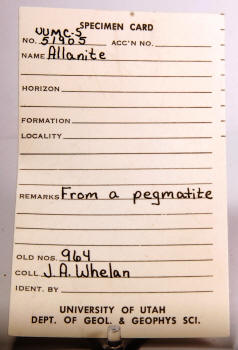 SPECIMEN CARD
UUMC-S
NO. 51905 ACC'N NO.
NAME Allanite
HORIZON
FORMATION
LOCALITY
REMARKS From a pegmatite
OLD NOS. 964
COLL. J.A. Whelan
IDENT. BY
UNIVERSITY OF UTAH
DEPT. OF GEOL. & GEOPHYS SCI.